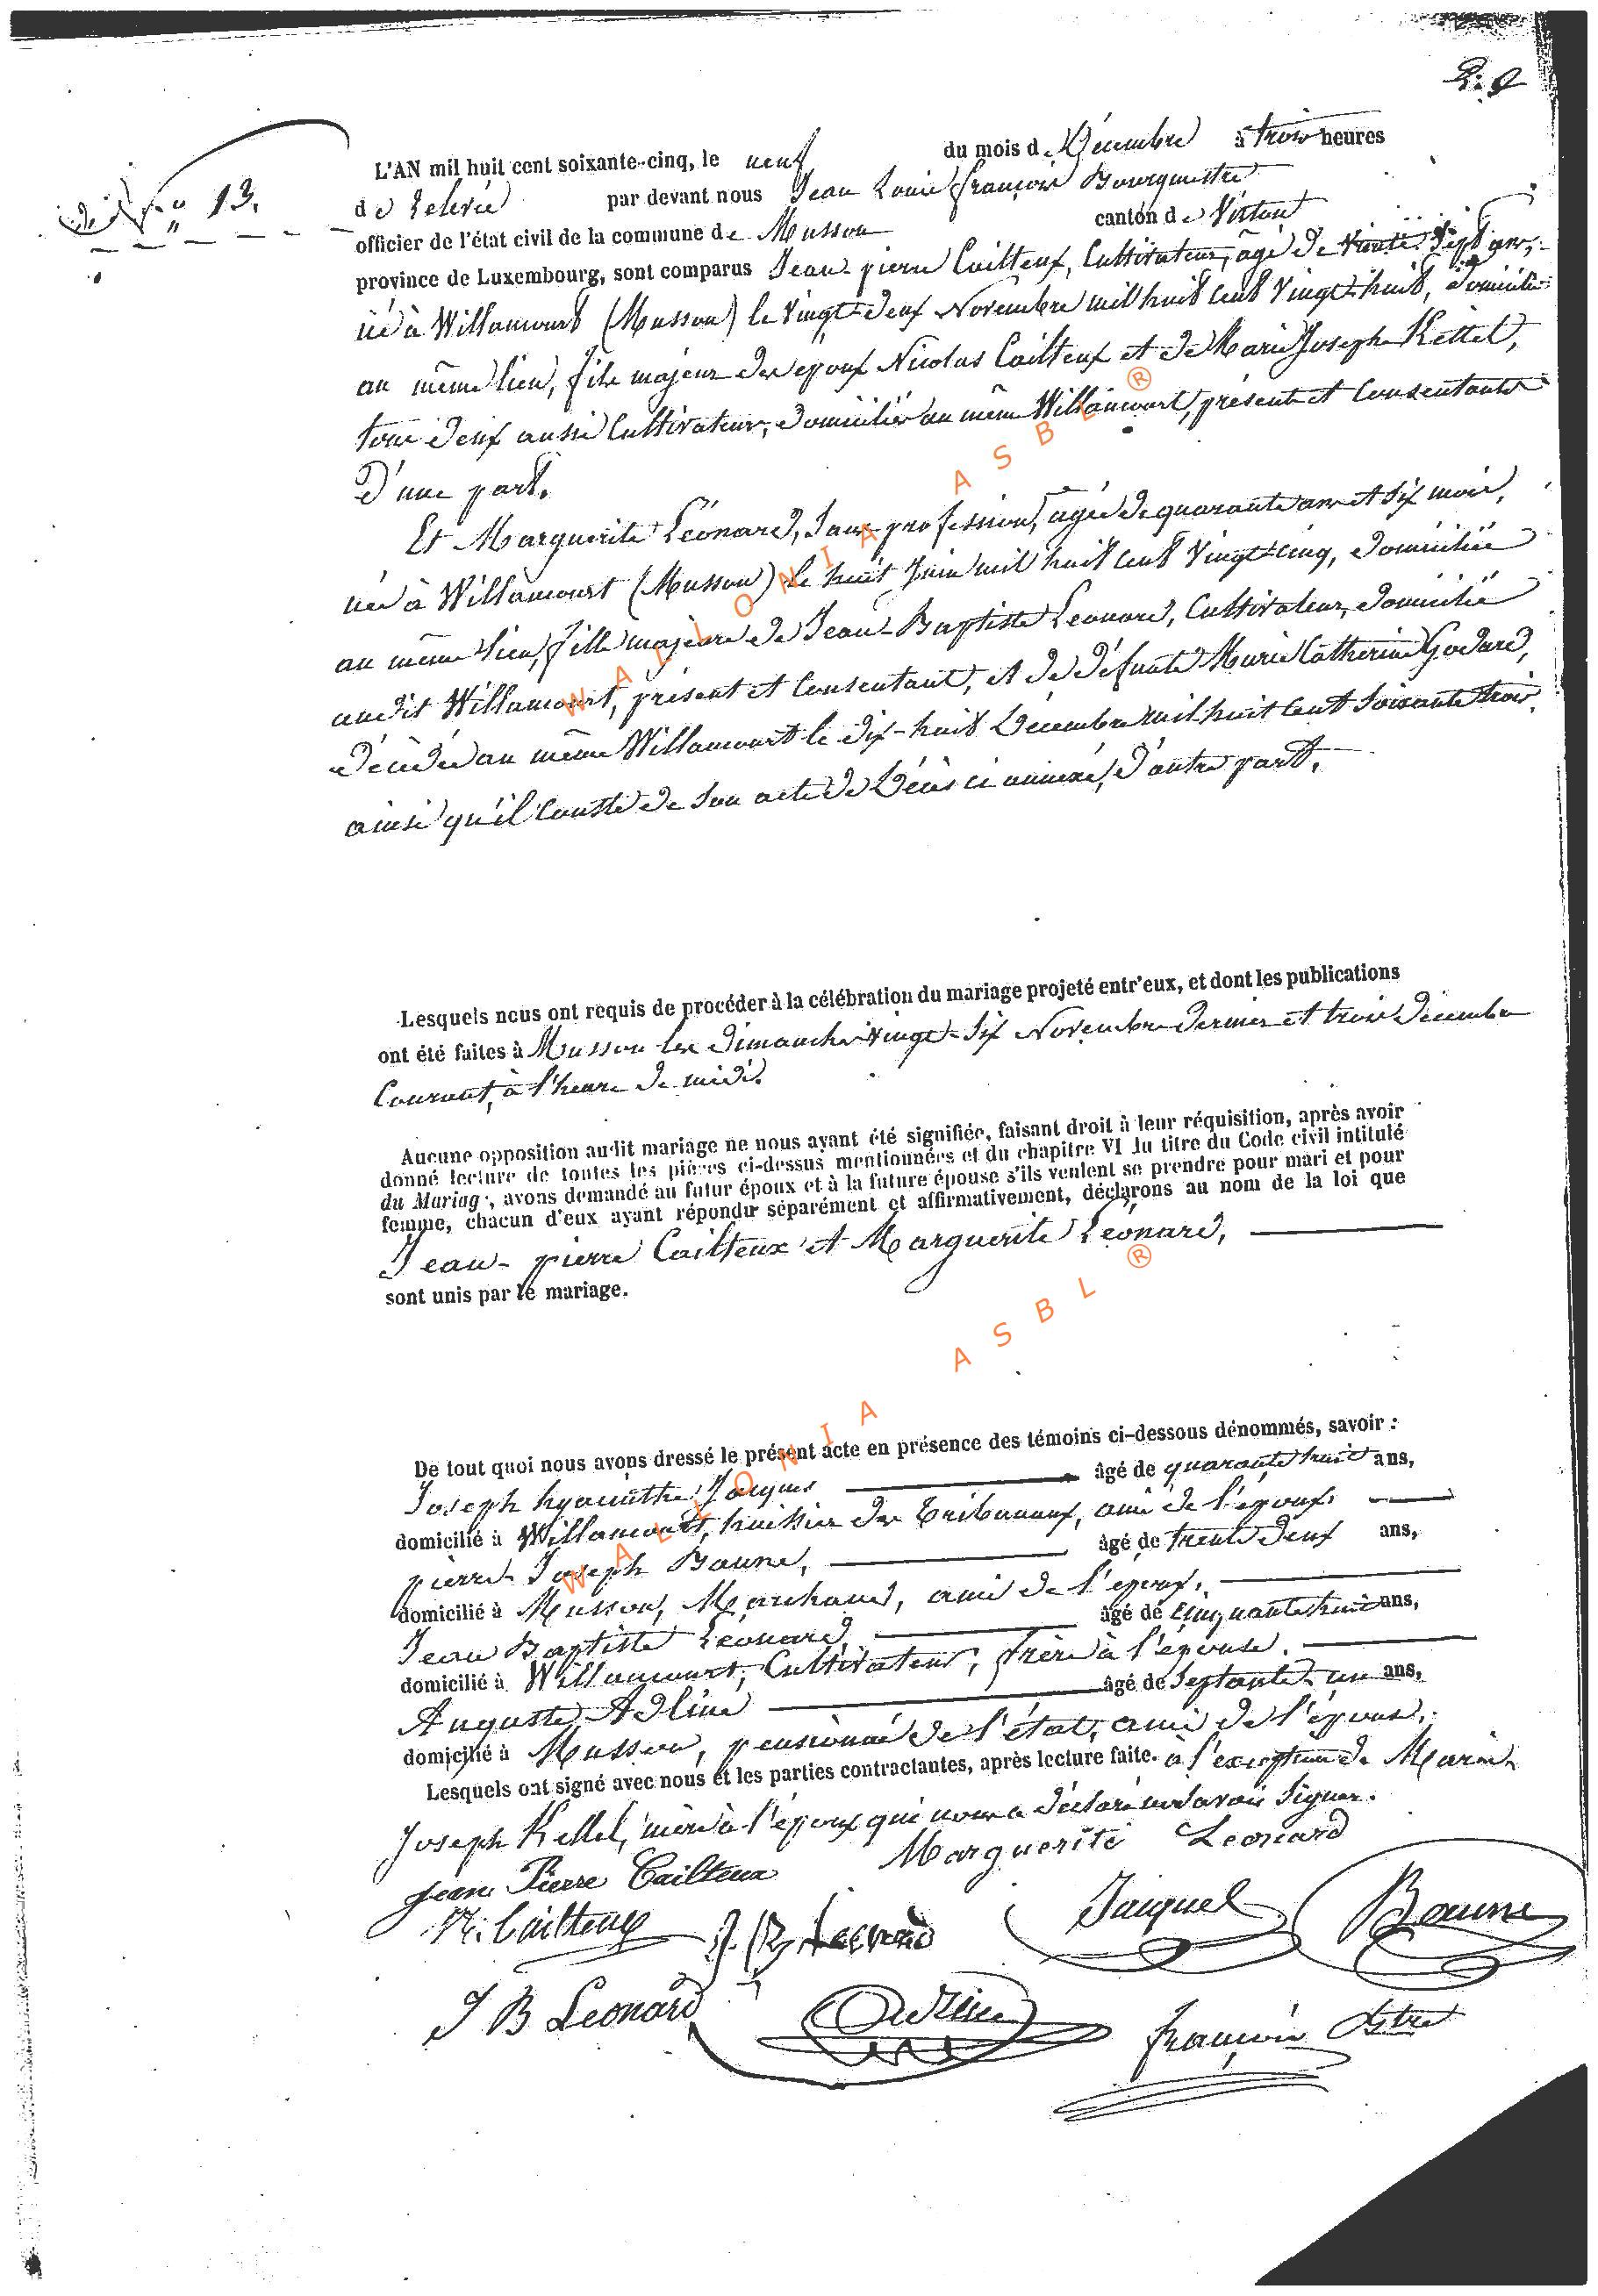 L'AN mil huit cent soixante-cinq, le neuf du mois de Décembre à trois heures
N° 13.
de relevée par devant nous Jean Louis François Bourgmestre
officier de l'état civil de la commune de Musson canton de Virton
province de Luxembourg, sont comparus Jean-pierre Cailteux, Cultivateur, âgé de trente-sept ans,
né à Willancourt (Musson) le vingt-deux Novembre mil huit cent vingt-huit, domicilié
au même lieu, fils majeur des époux Nicolas Cailteux et de Marie Joseph Kettel,
tous deux aussi Cultivateurs, domiciliés au même Willancourt, présents et consentants
D'une part.
Et Marguerite Léonard, sans profession, âgée de quarante ans et six mois,
née à Willancourt (Musson) le huit Juin mil huit cent vingt-cinq, domiciliée
au même lieu, fille majeure de Jean-Baptiste Léonard, Cultivateur, domicilié
audit Willancourt, présent et consentant, et de défunte Marie Catherine Godard,
décédée au même Willancourt le dix-huit Décembre mil huit cent soixante trois
ainsi qu'il conste de son acte de Décès ci annexé, d'autre part.
Lesquels nous ont requis de procéder à la célébration du mariage projeté entr'eux, et dont les publications
ont été faites à Musson les Dimanches vingt-six Novembre dernier et trois Décembre
Courant, à l'heure de midi.
Aucune opposition audit mariage ne nous ayant été signifiée, faisant droit à leur réquisition, après avoir
donné lecture de toutes les pièces ci-dessus mentionnées et du chapitre VI du titre du Code civil intitulé
du Mariage, avons demandé au futur époux et à la future épouse s'ils veulent se prendre pour mari et pour
femme, chacun d'eux ayant répondu séparément et affirmativement, déclarons au nom de la loi que
Jean-pierre Cailteux et Marguerite Léonard,
sont unis par le mariage.
De tout quoi nous avons dressé le présent acte en présence des témoins ci-dessous dénommés, savoir :
Joseph hyacinthe Jacques âgé de quarante huit ans,
domicilié à Willancourt, huissier des Tribunaux, ami de l'époux.
pierre Joseph Baune, âgé de trente deux ans,
domicilié à Musson, Marchand, ami de l'époux.
Jean Baptiste Léonard âgé de cinquante huit ans,
domicilié à Willancourt, Cultivateur, frère à l'épouse.
Auguste Adline âgé de septante-un ans,
domicilié à Musson, pensionné de l'état, ami de l'épouse.
Lesquels ont signé avec nous et les parties contractantes, après lecture faite. à l'exception de Marie
Joseph Kettel, mère à l'époux qui nous a déclaré ne savoir signer.
Jean Pierre Cailteux Marguerite Leonard
N. Cailteux J. B Leonard Jacques Baune
J B Leonard Adline françois Bstre
WALLONIA ASBL ®
WALLONIA ASBL ®